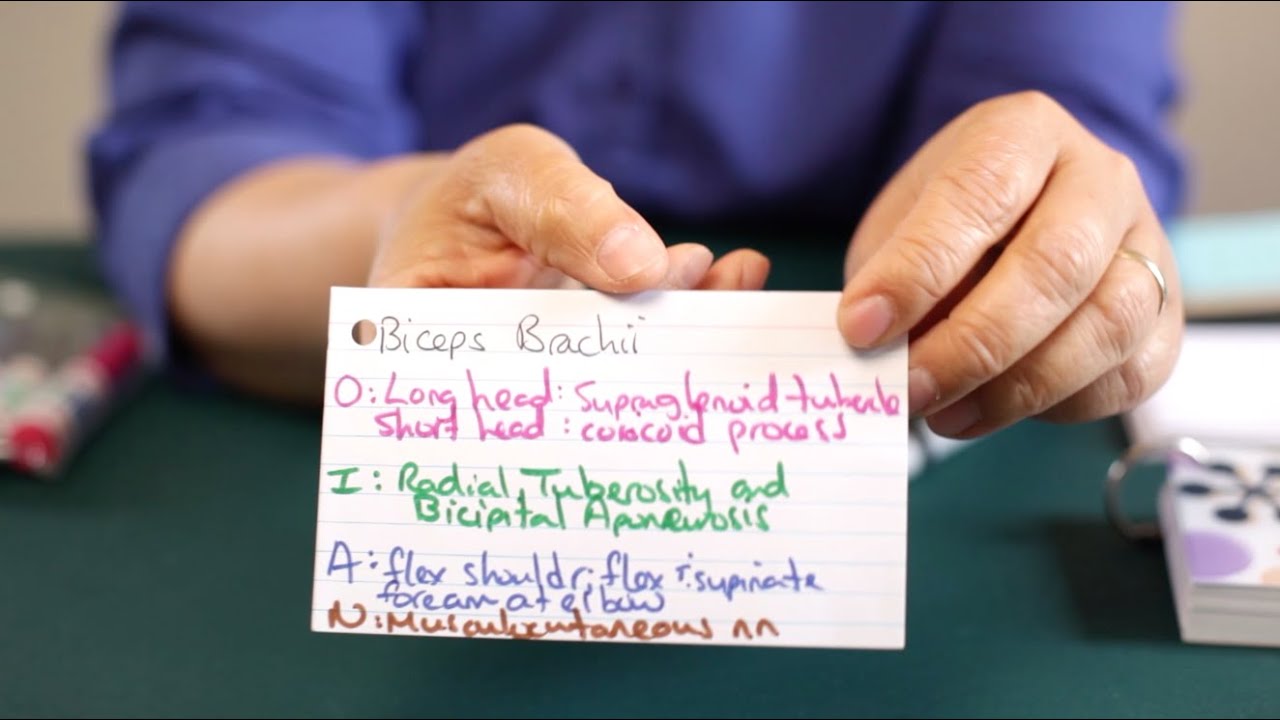 Biceps Brachii
O: Long head: Supraglenoid tubercle
Short head: coracoid process
I: Radial Tuberosity and
Bicipital Aponeurosis
A: flex shouldr; flex &
supinate
forearm at elbow
N: Musculocutaneous nn